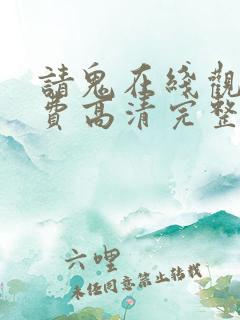 請鬼在綫觀
費高清完整
六哩
未経同意禁止転載